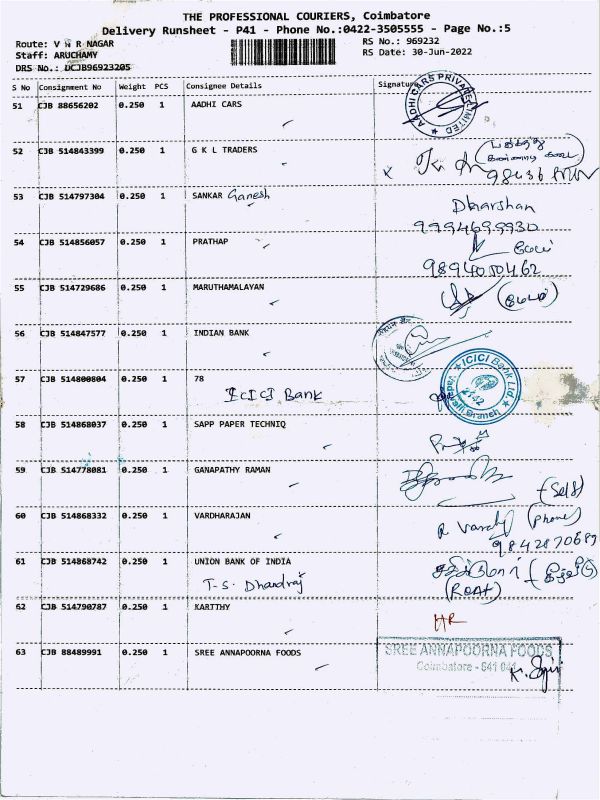 THE PROFESSIONAL COURIERS, Coimbatore
Delivery Runsheet - P41 - Phone No.:0422-3505555 - Page No.:5
Route: V N R NAGAR
RS No.: 969232
Staff: ARUCHAMY
RS Date: 30-Jun-2022
DRS No.: DCJB96923205
S No Consignment No Weight PCS Consignee Details Signature
51 CJB 88656202 0.250 1 AADHI CARS
AADHI CARS PRIVATE LIMITED
52 CJB 514843399 0.250 1 G K L TRADERS
53 CJB 514797304 0.250 1 SANKAR Ganesh
Dharshan
9994699930
54 CJB 514856057 0.250 1 PRATHAP
9894050462
55 CJB 514729686 0.250 1 MARUTHAMALAYAN
56 CJB 514847577 0.250 1 INDIAN BANK
57 CJB 514800804 0.250 1 78
ICICI Bank
ICICI Bank Ltd.
2142
Vadavalli Branch
58 CJB 514868037 0.250 1 SAPP PAPER TECHNIQ
59 CJB 514778081 0.250 1 GANAPATHY RAMAN
(Self)
60 CJB 514868332 0.250 1 VARDHARAJAN
(Phone)
9842870689
61 CJB 514868742 0.250 1 UNION BANK OF INDIA
T.S. Dhandraj
62 CJB 514790787 0.250 1 KARTTHY
HR
63 CJB 88489991 0.250 1 SREE ANNAPOORNA FOODS
SREE ANNAPOORNA FOODS
Coimbatore - 641 041